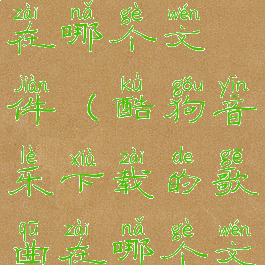 zài nǎ gè wén
在哪个文
jiàn kù gǒu yīn
件（酷狗音
lè xià zài de gē
乐下载的歌
qǔ zài nǎ gè wén
曲在哪个文